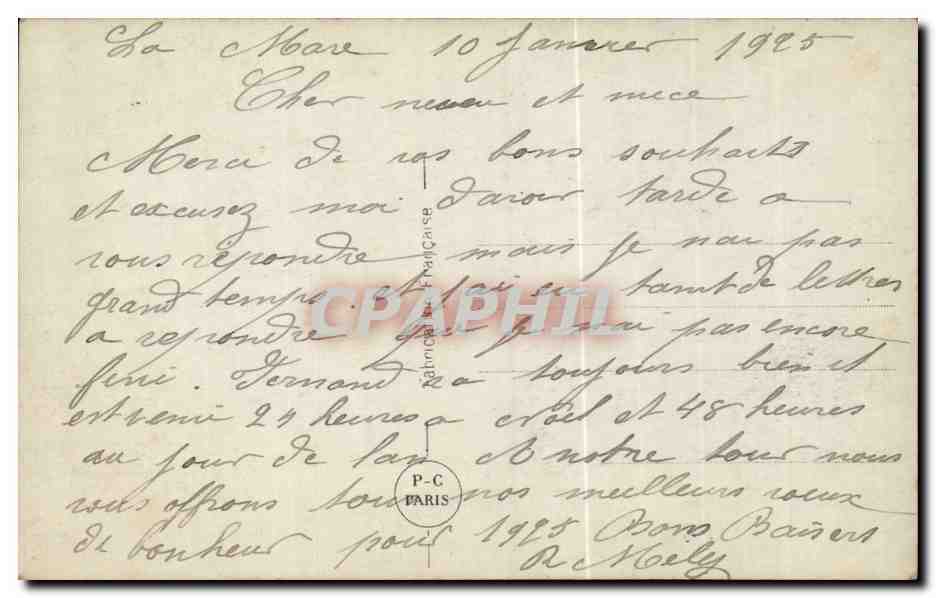 La Mare 10 Janvier 1925
Cher neveu et niece
Merci de vos bons souhaits
et excusez moi d'avoir tarde a
vous répondre mais je nai pas
grand temps. et jai eu tant de lettres
a repondre que je nai pas encore
fini. Fernand va toujours bien et
est venu 24 heures a Noël et 48 heures
au jour de lan A notre tour nous
vous offrons tous nos meilleurs voeux
de bonheur pour 1925 Bons Baisers
R Mely
Fabrication Française
P-C
PARIS
CPAPHIL